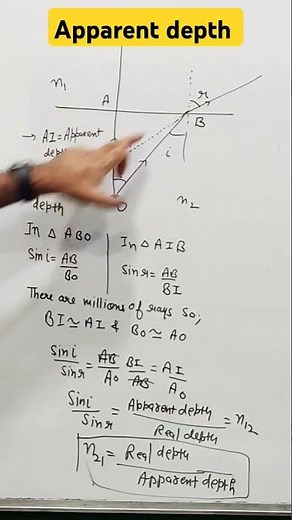 Apparent depth
n1
A
r
B
→ AI = Apparent
depth
i
O
n2
depth
In △ ABO
Sin i = AB/BO
In △ AIB
Sin r = AB/BI
There are millions of rays so;
BI ≃ AI & BO ≃ AO
Sin i/Sin r = AB/AO BI/AB = AI/AO
Sin i/Sin r = Apparent depth/Real depth = n12
n21 = Real depth/Apparent depth